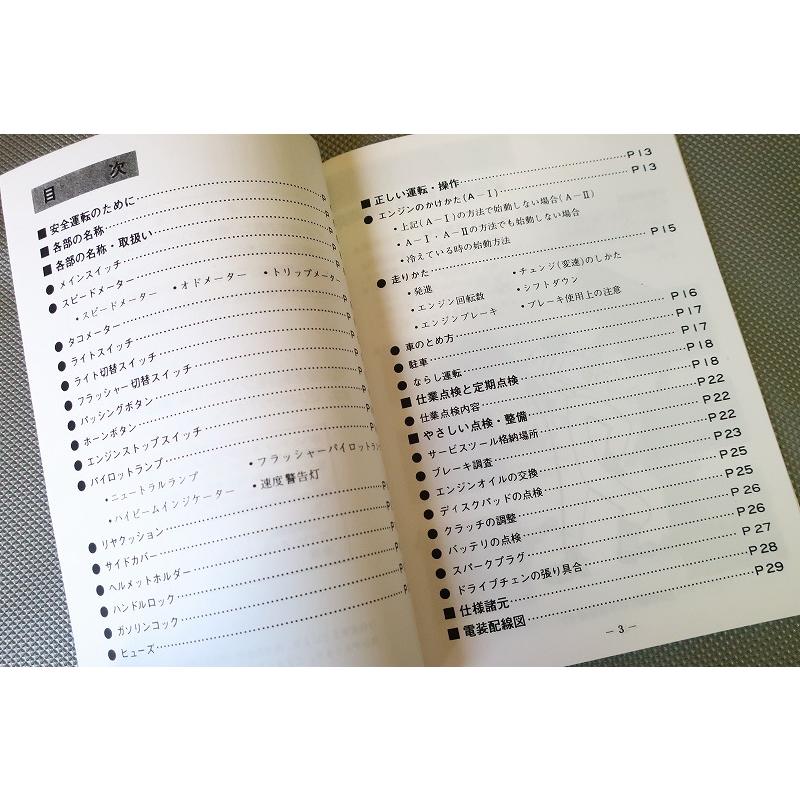 目次
■安全運転のために……P
■各部の名称……P
■各部の名称・取扱い……P
●メインスイッチ……P
●スピードメーター……P
・スピードメーター ・オドメーター ・トリップメーター
●タコメーター……P
●ライトスイッチ……P
●ライト切替スイッチ……P
●フラッシャー切替スイッチ……P
●パッシングボタン……P
●ホーンボタン……P
●エンジンストップスイッチ……P
●パイロットランプ……P
・ニュートラルランプ ・フラッシャーパイロットラン
・ハイビームインジケーター ・速度警告灯
●リヤクッション……P
●サイドカバー……P
●ヘルメットホルダー……P
●ハンドルロック……P
●ガソリンコック……P
●ヒューズ……P
■正しい運転・操作……P13
●エンジンのかけかた(A−I)……P13
・上記(A−I)の方法で始動しない場合(A−II)
・A−I・A−IIの方法でも始動しない場合
・冷えている時の始動方法
●走りかた……P15
・発進 ・チェンジ(変速)のしかた
・エンジン回転数 ・シフトダウン
・エンジンブレーキ ・ブレーキ使用上の注意
●車のとめ方……P16
●駐車……P17
●ならし運転……P17
■仕業点検と定期点検……P18
●仕業点検内容……P18
■やさしい点検・整備……P22
●サービスツール格納場所……P22
●ブレーキ調査……P22
●エンジンオイルの交換……P23
●ディスクパッドの点検……P25
●クラッチの調整……P25
●バッテリの点検……P26
●スパークプラグ……P26
●ドライブチェンの張り具合……P27
■仕様諸元……P28
■電装配線図……P29
−3−